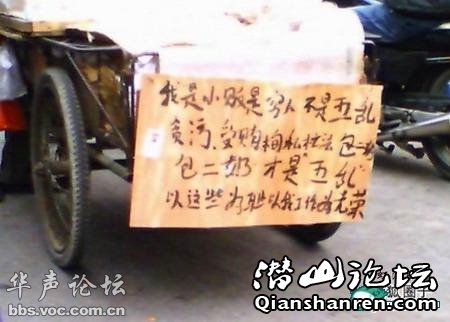 我是小贩是穷人 不是五乱
贪污、受贿徇私枉法 包
包二奶 才是"五乱"
以这些为耻以我工作为光荣
华声论坛
bbs.voc.com.cn
潜山论坛
Qianshanren.com